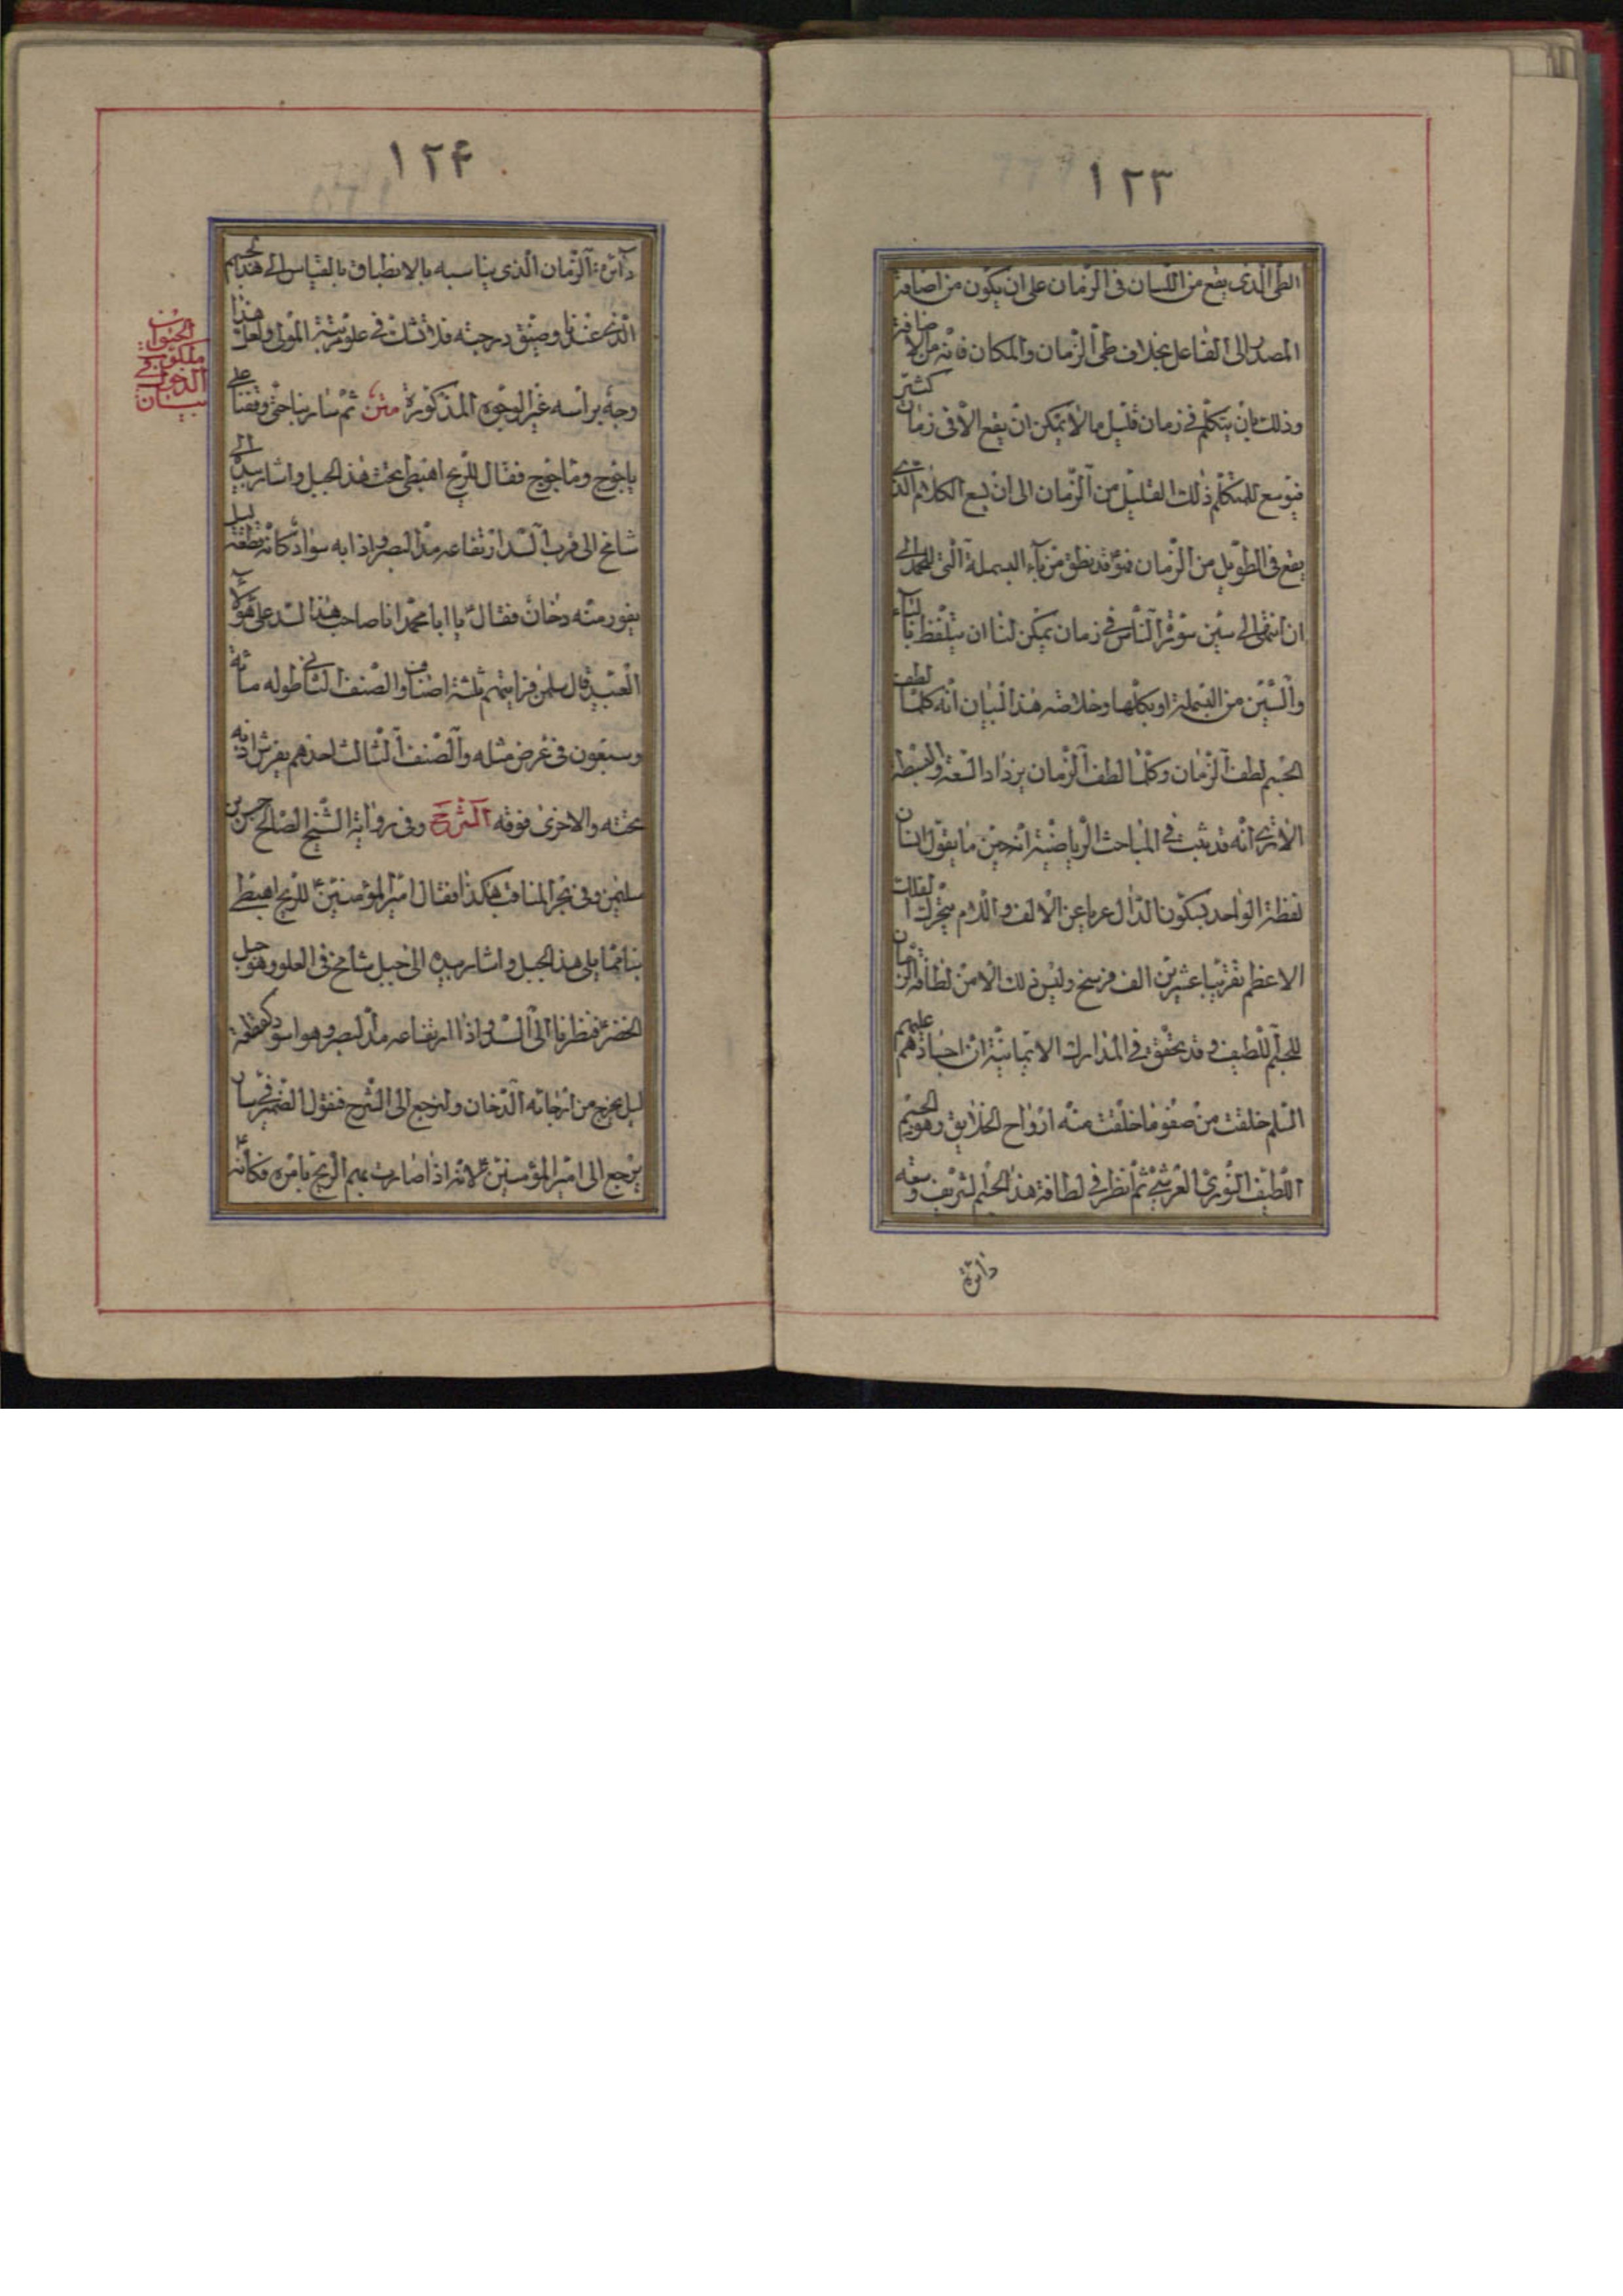 ١٢٣
الطی الذی یقع من اللسان فی الزمان علی ان یکون من اضافة
المصدر الی الفاعل بخلاف طی الزمان والمکان فانه من الاضافة
وذلک بان یتکلم فی زمان قلیل ما لا یمکن ان یقع الا فی زمان کثیر
فیوسع للمتکلم ذلک القلیل من الزمان الی ان یسع الکلام الذی
یقع فی الطویل من الزمان فهو قد نطق من باء البسملة التی للحمد الی
ان انتهی الی سین سورة الناس فی زمان یمکن لنا ان یتلفظ بالباء
والسین من البسملة او بکلها وخلاصة هذا البیان انه کلما لطف
الجسم لطف الزمان وکلما لطف الزمان یزداد السعة والبسطة
الا تری انه قد یثبت فی المباحث الریاضیة انه حین ما یقول انسان
لفظة الواحد بسکون الدال عریا عن الالف واللام یتحرک الفلک
الاعظم تقریبا عشرین الف فرسخ ولیس ذلک الا من لطافة الزمان
للجسم اللطیف وقد یحقق فی المدارک الایمانیة ان اجسادهم علیهم
السلم خلقت من صفو ما خلقت منه ارواح الخلایق وهو الجسم
اللطیف النوری العرشی ثم انظر فی لطافة هذا الجسم الشریف وسعة
دائرة
١٢۴
دائرة الزمان الذی یناسبه بالانطباق بالقیاس الی هذا الجسم
الذی عندنا وضیق درجته فلا تشک فی علو مرتبة المولی ولعل هذا
وجه برأسه غیر الوجوه المذکورة متن ثم سار بنا حتی وقفنا علی
یاجوج وماجوج فقال للریح اهبطی تحت هذا الجبل واشار بیده الی
شامخ الی قرب السد ارتفاعه مد البصر واذا به سواد کانه قطعة لیل
یفور منه دخان فقال یا ابا محمد انا صاحب هذا السد علی هؤلاء
العبید قال سلمن فرایتهم ثلثة اصناف والصنف الثانی طوله مائة
وسبعون فی عرض مثله والصنف الثالث احدهم یفرش اذنه
تحته والاخری فوقه الشرح وفی روایة الشیخ الصالح حسن بن
سلیمن وفی بحر المناقب هکذا فقال امیر المؤمنین ع للریح اهبطی
بنا مما یلی هذا الجبل واشار بیده الی جبل شامخ فی العلو وهو جبل
الخضر ع فنظرنا الی السد واذا ارتفاعه مد البصر وهو اسود کقطعة
لیل یخرج من ارجائه الدخان ولنرجع الی الشرح فنقول الضمیر فی سار
یرجع الی امیر المؤمنین ع لانه اذا صارت بهم الریح بامره فکأنه
بیان
الحیوان